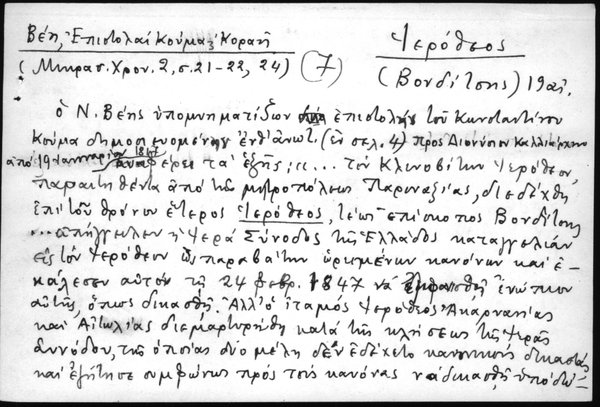 Βέη, Ἐπιστολαί Κούμα, Κοραῆ
Ἱερόθεος
(Μικρασ. Χρον. 2, σ. 21-22, 24)
(7)
(Βονδίτσης) 19 αἰ.
ὁ Ν. Βέης ὑπομνηματίζων ἐπιστολήν τοῦ Κωνσταντίνου
Κούμα δημοσιευομένην ἐνθ' ἀνωτ. (ἐν σελ. 4) πρός Διονύσιον
ἀπό 19 Ἰανουαρίου 1847 ἀναφέρει τά ἑξῆς: «... τόν Κλεινοβίτην Ἱερόθεον,
παραιτηθέντα ἀπό τῆς μητροπόλεως Παροναξίας, διεδέχθη
ἐπί τοῦ θρόνου ἕτερος Ἱερόθεος, τέως ἐπίσκοπος Βονδίτσης
... ἀπήγγειλεν ἡ Ἱερά Σύνοδος τῆς Ἑλλάδος καταγγελίαν
εἰς τόν Ἱερόθεον ὡς παραβάτην ὡρισμένων κανόνων καί ἐ-
κάλεσεν αὐτόν τῇ 24 φεβρ. 1847 νά ἐμφανισθῇ ἐνώπιον
αὐτῆς, ὅπως δικασθῇ. Ἀλλ' ὁ ἰταμός Ἱερόθεος Ἀκαρνανίας
καί Αἰτωλίας διεμαρτυρήθη κατά τῆς κλήσεως τῆς Ἱερᾶς
συνόδου, τῆς ὁποίας δύο μέλη δέν ἐδέχετο κανονικούς δικαστάς
καί ἐζήτησε συμφώνως πρός τούς κανόνας νά δικασθῇ ὑπό δώ-